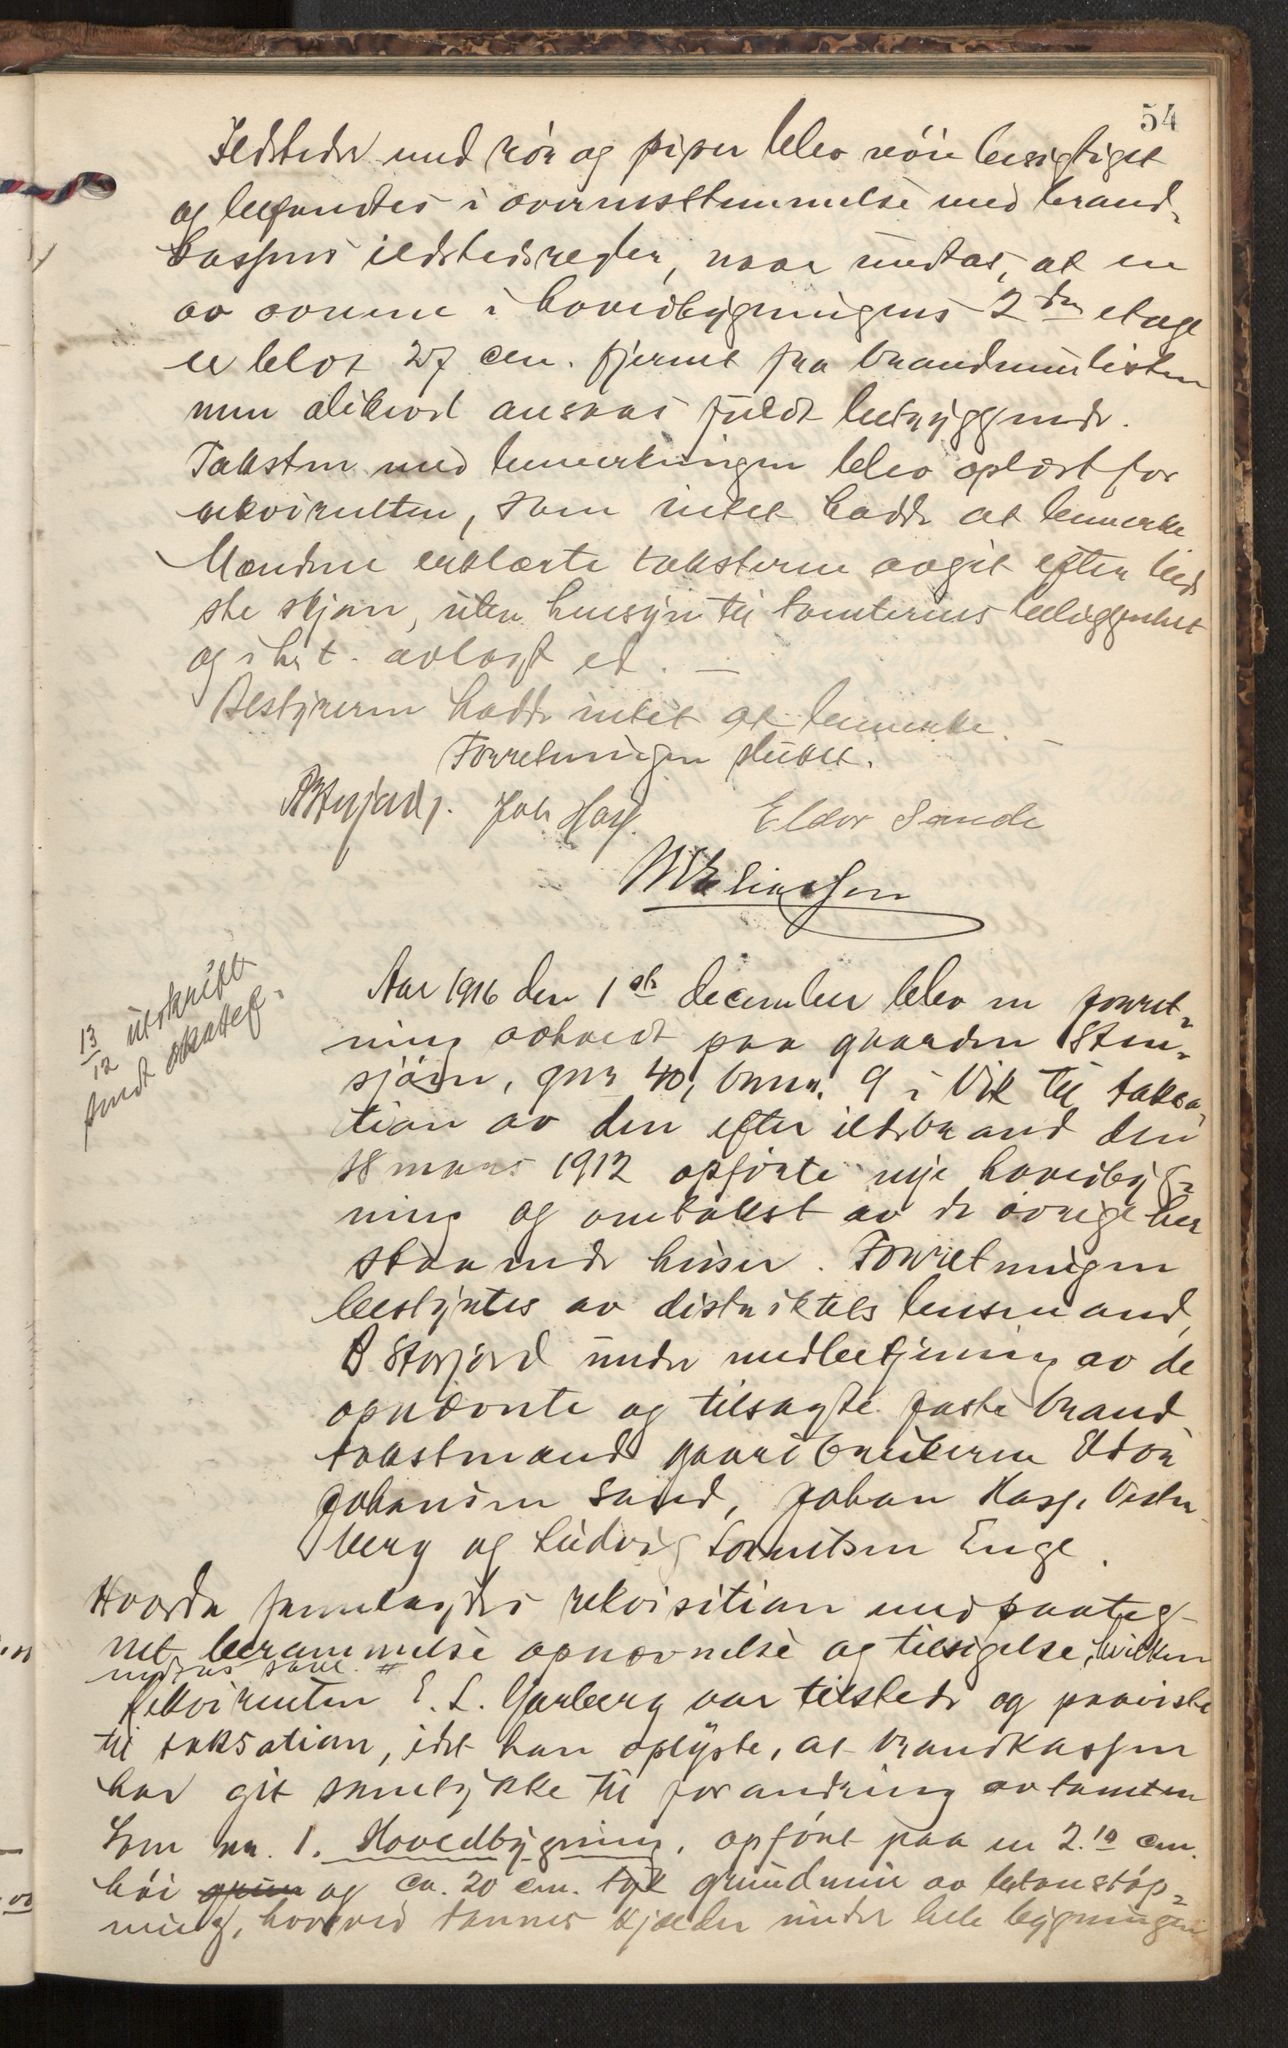 54
Ildsteder med rør og piper blev nøie besigtiget
og befandtes i overensstemmelse med brand-
kassens ildstedsregler, naar undtas, at en
av ovnene i hovedbygningens 2den etage
er blot 27 cm. fjernet fra brandmurlisten
men alikevel ansaas fuldt betryggende.
Taksten med bemerkninger blev oplæst for
rekvirenten, som intet hadde at bemerke
Mændene erklærte taksterne avgit efter bed
ste skjøn, uten hensyn til tomternes beliggenhet
og i h. t. avlagt ed. —
Bestyreren hadde intet at bemerke. —
Forretningen sluttet.
B Storjord. Joh Hasf. Eldor Sande
Aar 1916 den 1ste december blev en forret-
ning avholdt paa gaarden Sten-
sjøen, gnr 40, bnr. 9 i Vik til taksa-
tion av den efter ildsbrand den
18 mars 1912 opførte nye hovedbyg-
ning og omtakst av de øvrige her
staaende huser. Forretningen
bestyrtes av distriktets lensmand,
B Storjord under medbetjening av de
opnævnte og tilsagte faste brand
takstmænd gaardbrukerne Eldor
Johansen Sand, Johan Hasf, Vester
berg og Ludvig Lorentsen Enge.
13/12 utskrift
sendt skatef.
Hvorda fremlagdes rekvisition med paateg-
net berammelse opnævnelse og tilsigelse, hvilken
Rekvirenten E. L. Garberg var tilstede og paaviste
til taksation, idet han oplyste, at brandkassen
har git samtykke til forandring av tomten
Som nr. 1. Hovedbygning, opført paa en 2.10 cm.
høi og ca. 20 cm. tyk grundmur av betonstøp-
ning, hvorved dannes kjælder under hele bygningen